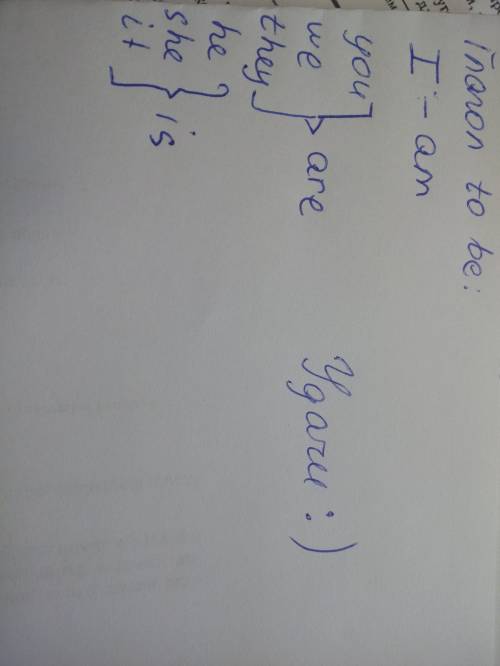 Глагол to be:
I - am
you
we
they } are
he
she
it } is
Удачи :)